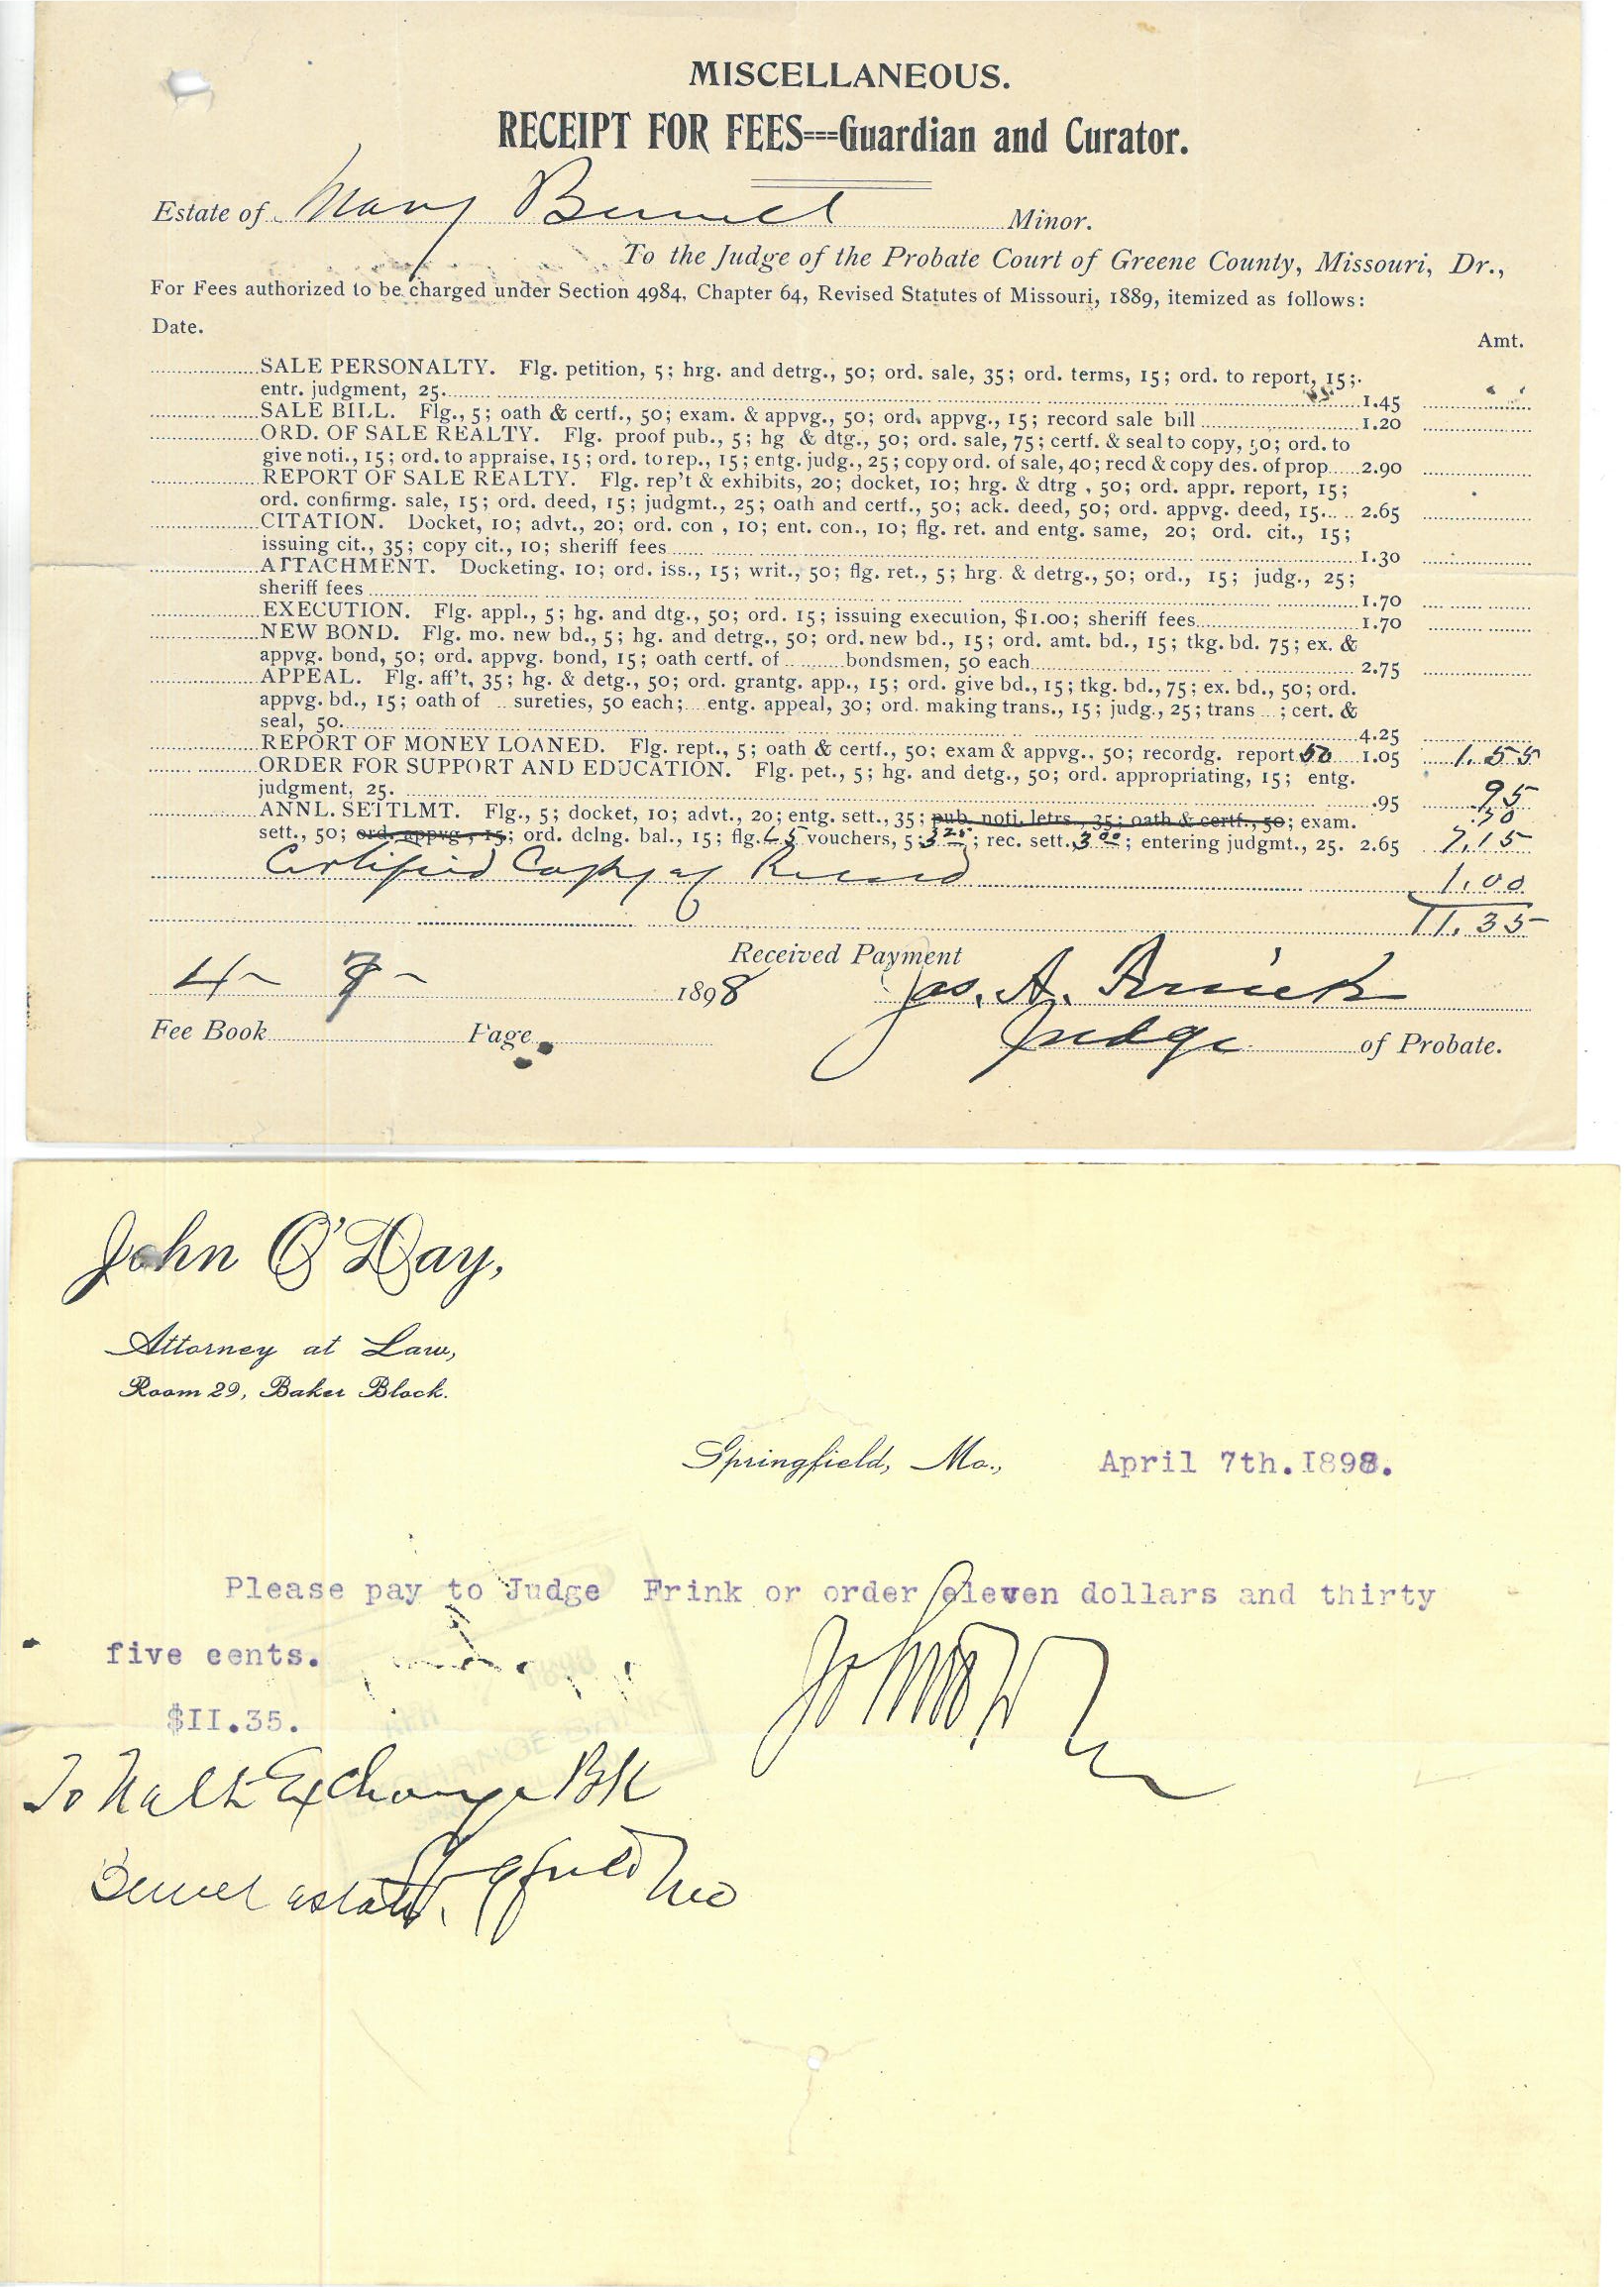 MISCELLANEOUS.
RECEIPT FOR FEES===Guardian and Curator.
Estate of Mary Minor.
To the Judge of the Probate Court of Greene County, Missouri, Dr.,
For Fees authorized to be charged under Section 4984, Chapter 64, Revised Statutes of Missouri, 1889, itemized as follows:
Date. Amt.
SALE PERSONALTY. Flg. petition, 5; hrg. and detrg., 50; ord. sale, 35; ord. terms, 15; ord. to report, 15;
entr. judgment, 25. 1.45
SALE BILL. Flg., 5; oath & certf., 50; exam. & appvg., 50; ord. appvg., 15; record sale bill 1.20
ORD. OF SALE REALTY. Flg. proof pub., 5; hg & dtg., 50; ord. sale, 75; certf. & seal to copy, 50; ord. to
give noti., 15; ord. to appraise, 15; ord. to rep., 15; entg. judg., 25; copy ord. of sale, 40; recd & copy des. of prop 2.90
REPORT OF SALE REALTY. Flg. rep't & exhibits, 20; docket, 10; hrg. & dtrg , 50; ord. appr. report, 15;
ord. confirmg. sale, 15; ord. deed, 15; judgmt., 25; oath and certf., 50; ack. deed, 50; ord. appvg. deed, 15 2.65
CITATION. Docket, 10; advt., 20; ord. con , 10; ent. con., 10; flg. ret. and entg. same, 20; ord. cit., 15;
issuing cit., 35; copy cit., 10; sheriff fees 1.30
ATTACHMENT. Docketing, 10; ord. iss., 15; writ., 50; flg. ret., 5; hrg. & detrg., 50; ord., 15; judg., 25;
sheriff fees 1.70
EXECUTION. Flg. appl., 5; hg. and dtg., 50; ord. 15; issuing execution, $1.00; sheriff fees 1.70
NEW BOND. Flg. mo. new bd., 5; hg. and detrg., 50; ord. new bd., 15; ord. amt. bd., 15; tkg. bd. 75; ex. &
appvg. bond, 50; ord. appvg. bond, 15; oath certf. of bondsmen, 50 each 2.75
APPEAL. Flg. aff't, 35; hg. & detg., 50; ord. grantg. app., 15; ord. give bd., 15; tkg. bd., 75; ex. bd., 50; ord.
appvg. bd., 15; oath of sureties, 50 each; entg. appeal, 30; ord. making trans., 15; judg., 25; trans ; cert. &
seal, 50. 4.25
REPORT OF MONEY LOANED. Flg. rept., 5; oath & certf., 50; exam & appvg., 50; recordg. report 50 1.05 1.55
ORDER FOR SUPPORT AND EDUCATION. Flg. pet., 5; hg. and detg., 50; ord. appropriating, 15; entg.
judgment, 25. .95 95
ANNL. SETTLMT. Flg., 5; docket, 10; advt., 20; entg. sett., 35; pub. noti. letrs., 35; oath & certf., 50; exam.
sett., 50; ord. appvg , 15; ord. dclng. bal., 15; flg. 65 vouchers, 5; 3 25; rec. sett., 3 00; entering judgmt., 25. 2.65 7.15
Certified Copy of Record 1.00
11.35
Received Payment
4 - 7 - 1898 Jas. A. Frink
Fee Book Page Judge of Probate.
John O'Day,
Attorney at Law,
Room 29, Baker Block.
Springfield, Mo., April 7th. I898.
Please pay to Judge Frink or order eleven dollars and thirty
five cents.
$II.35.
To Natl Exchange Bk
estate. Mo